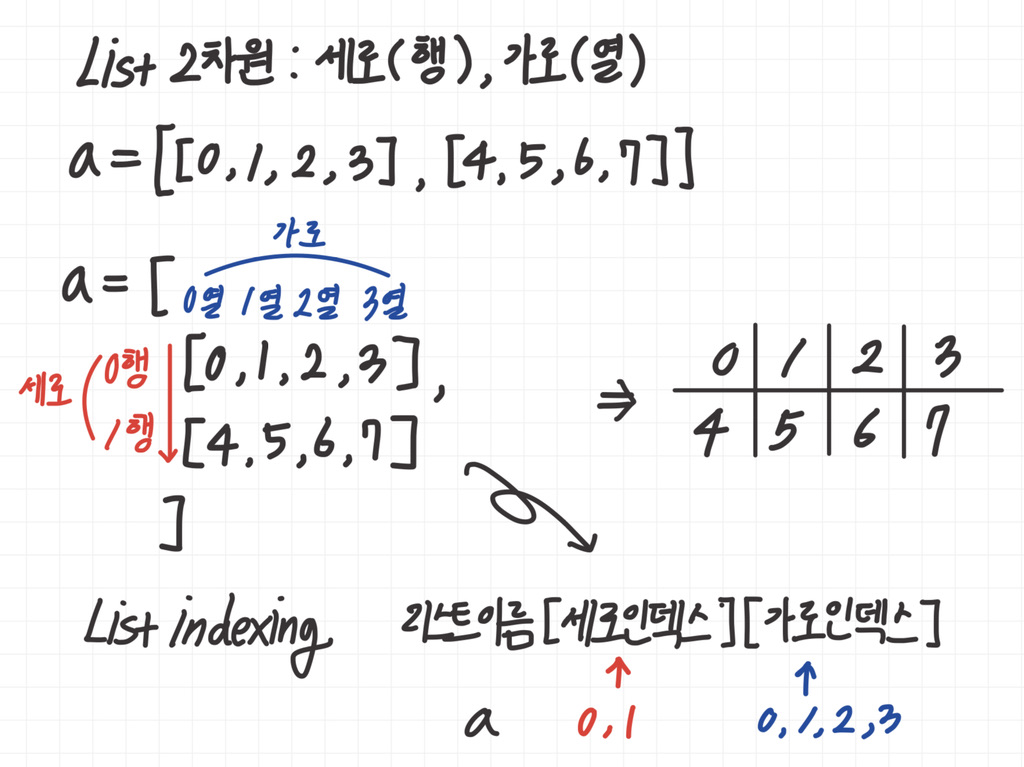 List 2차원 : 세로(행), 가로(열)
a = [[0, 1, 2, 3] , [4, 5, 6, 7]]
가로
a = [ 0열 1열 2열 3열
세로 0행 [0, 1, 2, 3] ,
1행 [4, 5, 6, 7]
]
⇒ 0 1 2 3
4 5 6 7
List indexing 리스트이름[세로인덱스][가로인덱스]
a 0, 1 0, 1, 2, 3